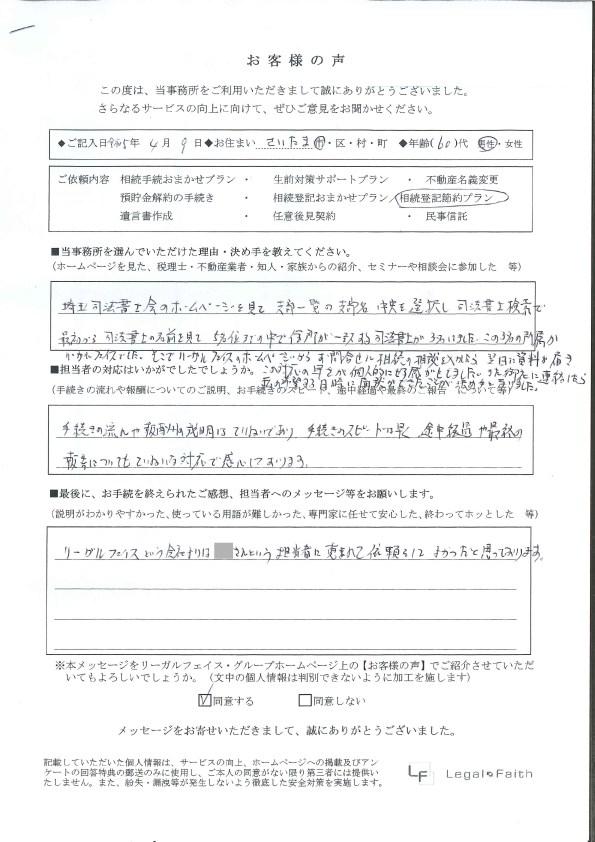 お客様の声
この度は、当事務所をご利用いただきまして誠にありがとうございました。
さらなるサービスの向上に向けて、ぜひご意見をお聞かせください。
◆ご記入日 令和5年 4月 9日◆お住まい さいたま 市・区・村・町 ◆年齢(60)代 男性・女性
ご依頼内容 相続手続おまかせプラン ・ 生前対策サポートプラン ・ 不動産名義変更
預貯金解約の手続き ・ 相続登記おまかせプラン・ 相続登記節約プラン
遺言書作成 ・ 任意後見契約 ・ 民事信託
■当事務所を選んでいただけた理由・決め手を教えてください。
（ホームページを見た、税理士・不動産業者・知人・家族からの紹介、セミナーや相談会に参加した 等）
埼玉司法書士会のホームページを見て 支部一覧の支部名 中央を選択し 司法書士検索で
司法書士の名前を見て 5名位までの中で住所が一致する司法書士が3名いました。この3名の所属が
リーガルフェイスでした。そこでリーガルフェイスのホームページから お問合せに相続の相談を入れたら 当日に資料が届き
■担当者の対応はいかがでしたでしょうか。
この対応の早さが個人的には好感がもてました。また
（手続きの流れや報酬についてのご説明、お手続きのスピード、途中経過や最終のご報告 について等）
手続きの流れや報酬の説明はていねいであり 手続きのスピードは早く 途中経過や最終の
報告についてもていねいな対応で感心しております。
■最後に、お手続を終えられたご感想、担当者へのメッセージ等をお願いします。
（説明がわかりやすかった、使っている用語が難しかった、専門家に任せて安心した、終わってホッとした 等）
リーガルフェイスという会社よりは さんという担当者に恵まれて依頼して よかったと思っております。
※本メッセージをリーガルフェイス・グループホームページ上の【お客様の声】でご紹介させていただ
いてもよろしいでしょうか。（文中の個人情報は判別できないように加工を施します）
☑同意する □同意しない
メッセージをお寄せいただきまして、誠にありがとうございました。
記載していただいた個人情報は、サービスの向上、ホームページへの掲載及びアン
ケートの回答特典の郵送のみに使用し、ご本人の同意がない限り第三者には提供い
たしません。また、紛失・漏洩等が発生しないよう徹底した安全対策を実施します。
LF Legal Faith